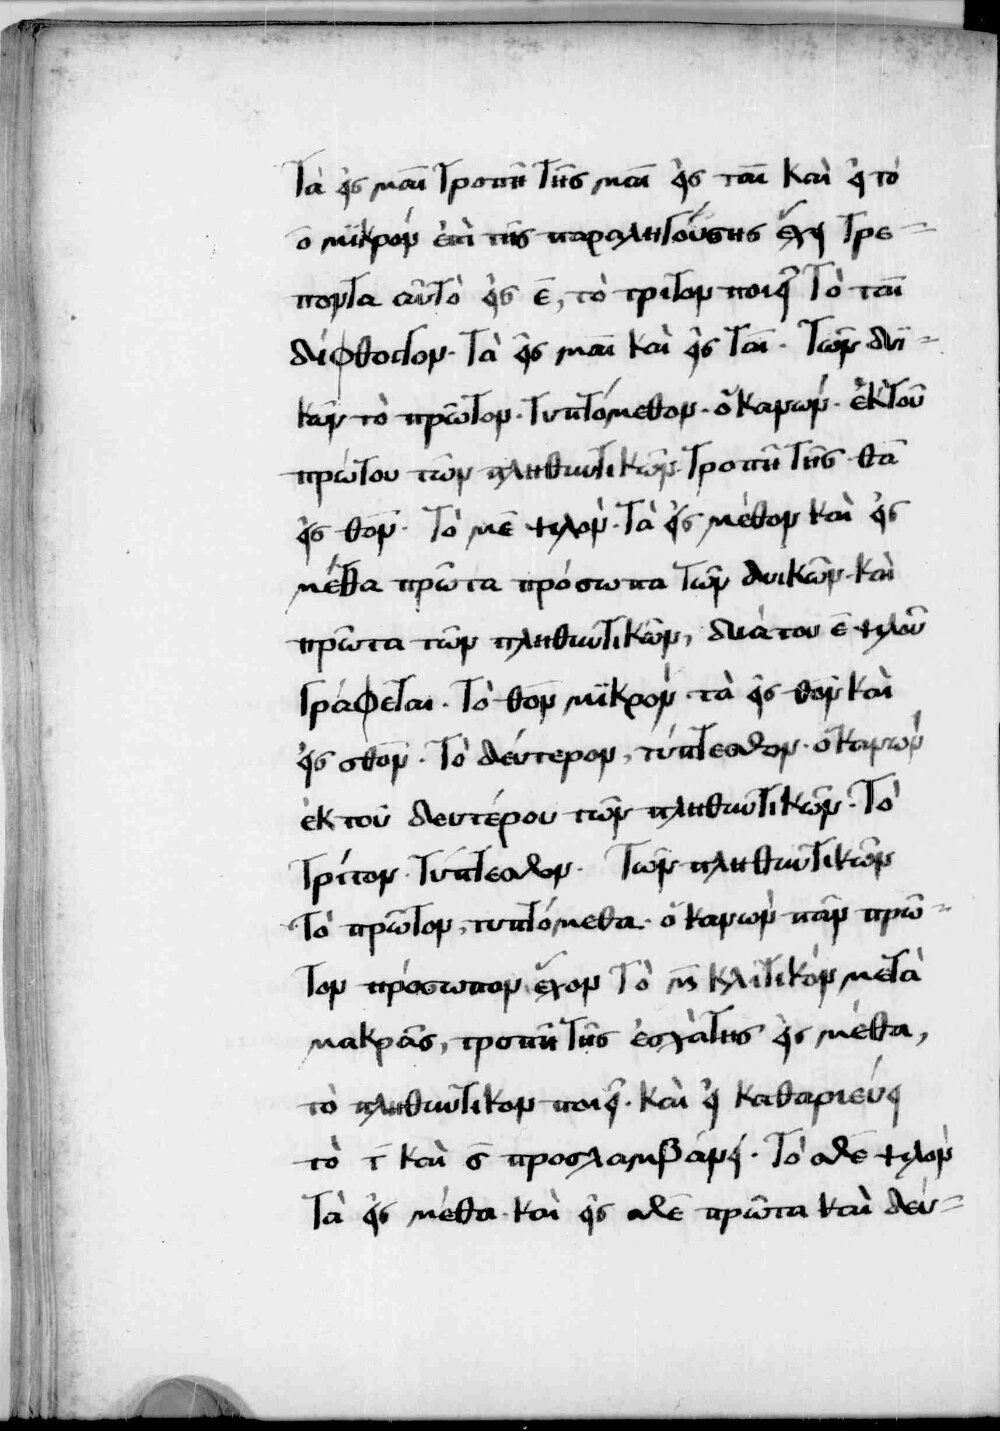 Τὰ εἰς μαι τροπῆ τῆς μαι εἰς ται καὶ εἰ τὸ
ο μϊκρὸν ἐπὶ τῆς παραληγούσης ἔχει τρέ=
πονται αὐτὸ εἰς ε, τὸ τρίτον ποιεῖ Τὸ ται
δίφθογγον. Τὰ εἰς μαι καὶ εἰς ται. Τῶν δυϊ=
κῶν τὸ πρῶτον. τυπτόμεθον. ὁ κανών. ἐκ τοῦ
πρώτου τῶν πληθυντικῶν τροπῆ τῆς θα
εἰς θον. Τὸ με ψιλόν. Τὰ εἰς μεθον καὶ εἰς
μέθα πρῶτα πρόσωπα τῶν δυικῶν. καὶ
πρῶτα τῶν πληθυντικῶν, διὰ του ε ψιλοῦ
γράφεται. Τὸ θον μϊκρόν. τὰ εἰς θον καὶ
εἰς σθον. Τὸ δεύτερον, τύπτεσθον. ὁ κανών
ἐκ τοῦ δευτέρου τῶν πληθυντικῶν. Τὸ
τρίτον. τύπτεσθον. Τῶν πληθυντικῶν
Τὸ πρῶτον, τυπτόμεθα. ὁ κανών πᾶν πρῶ=
τον πρόσωπον ἔχον Τὸ κλιτικὸν μετὰ
μακρᾶς, τροπῆ τῆς ἐσχάτης εἰς μεθα,
τὸ πληθυντικον ποιεῖ. καὶ εἰ καθαριεύει
τὸ τ καὶ σ προσλαμβάνει. Τὸ σθε ψιλὸν
Τὰ εἰς μέθα. καὶ εἰς σθε πρῶτα καὶ δεύ=